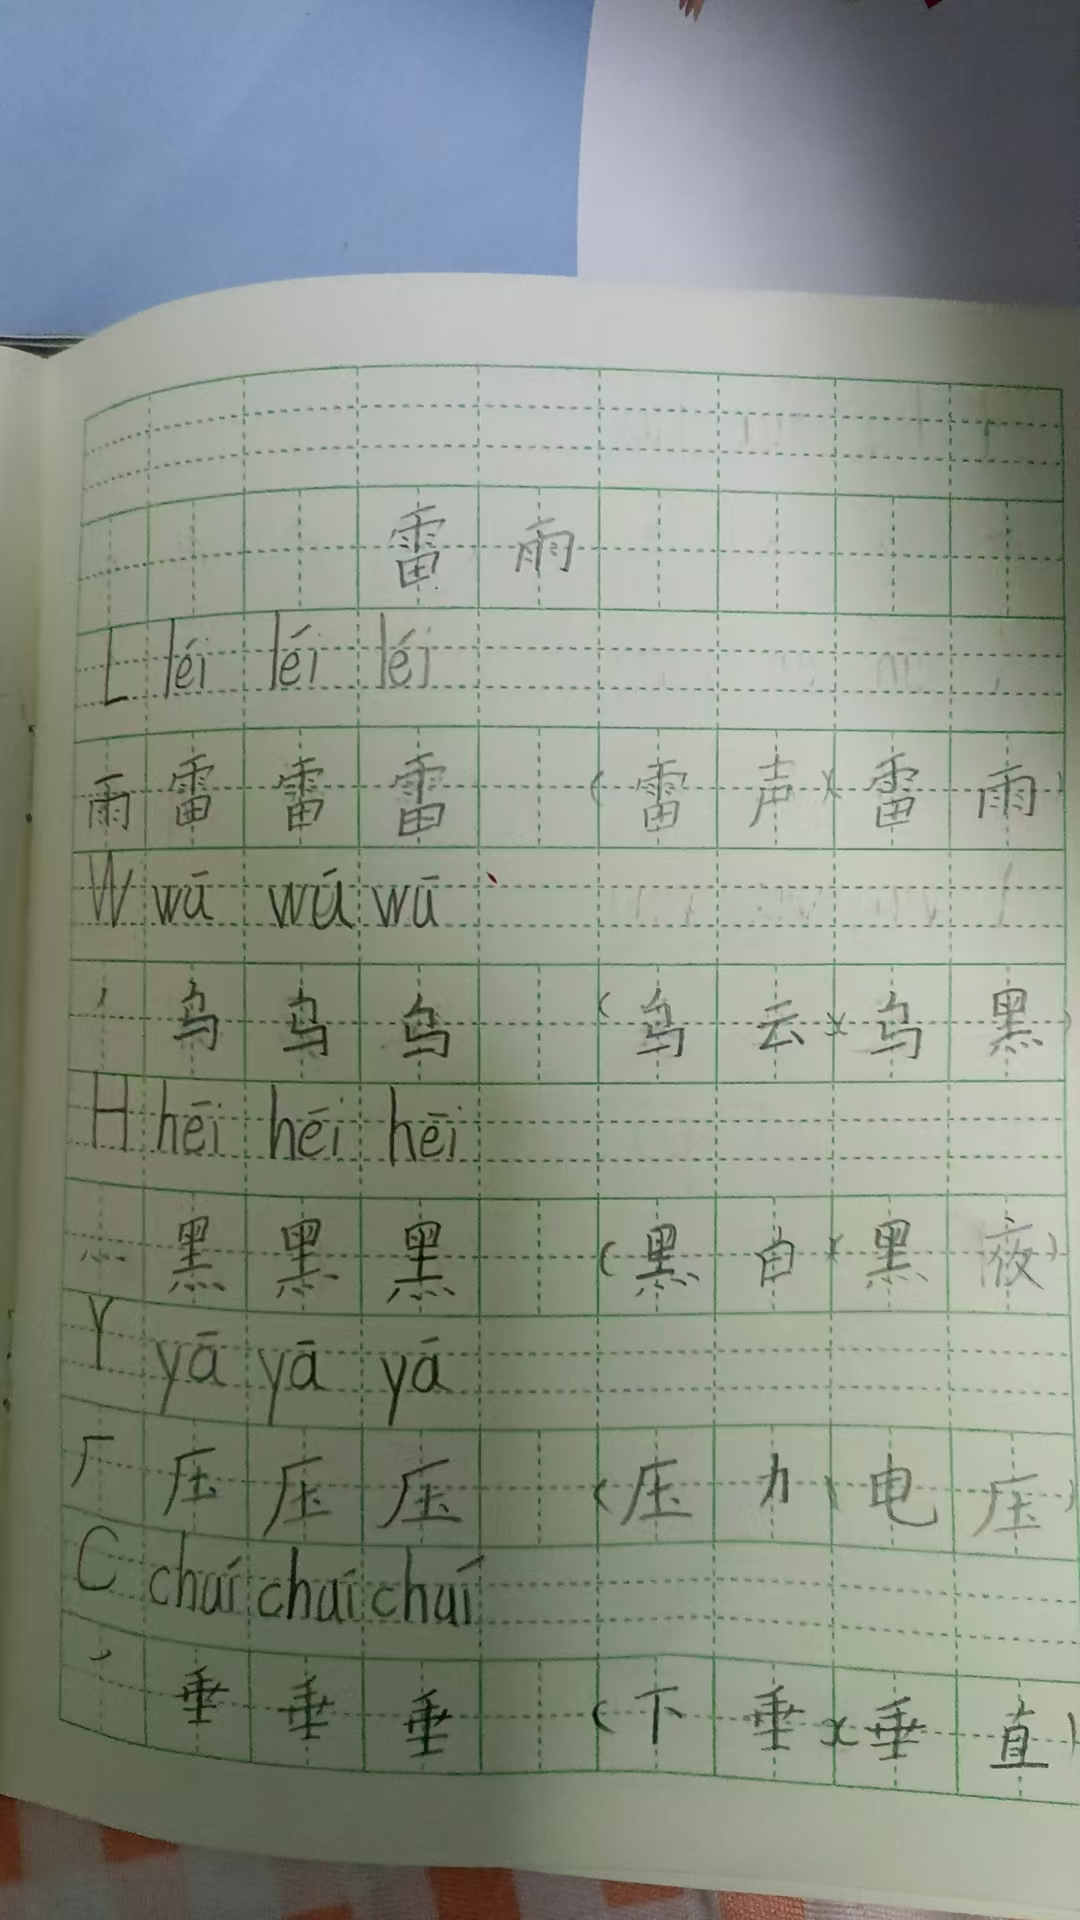 雷雨
L léi léi léi
雨 雷 雷 雷 (雷声)(雷雨)
W wū wū wū
丿 乌 乌 乌 (乌云)(乌黑)
H hēi hēi hēi
灬 黑 黑 黑 (黑白)(黑夜)
Y yā yā yā
厂 压 压 压 (压力)(电压)
C chuí chuí chuí
丿 垂 垂 垂 (下垂)(垂直)